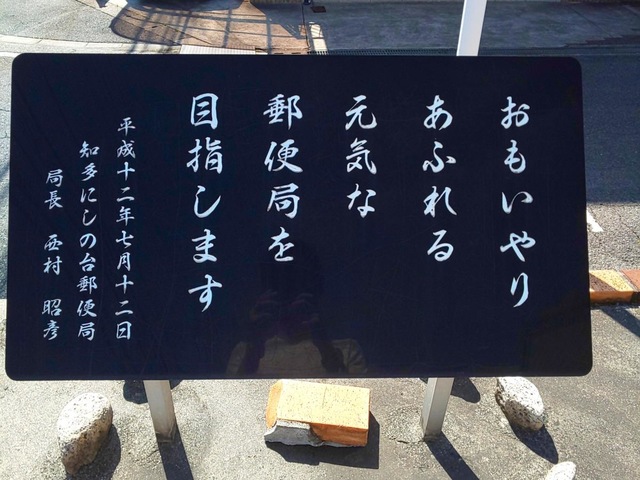 おもいやり
あふれる
元気な
郵便局を
目指します
平成十二年七月十二日
知多にしの台郵便局
局長 西村 昭彦